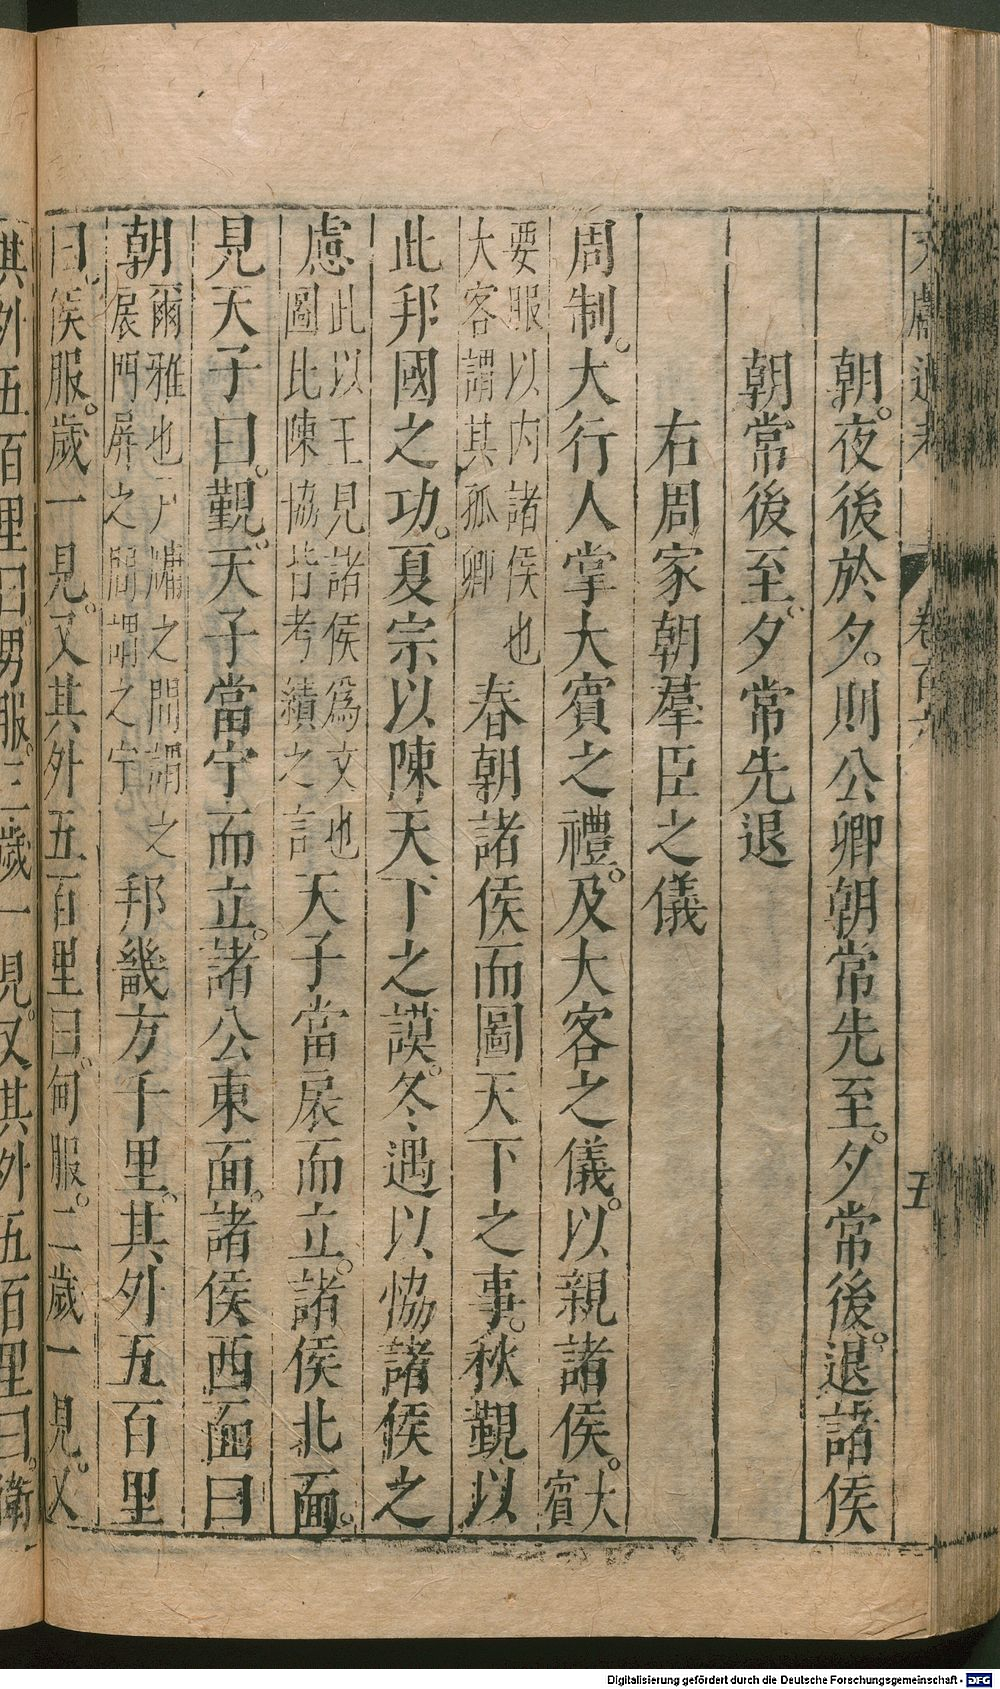 文獻通考 卷百六 五
朝。夜後於夕。則公卿朝常先至。夕常後。退諸侯
朝常後至。夕常先退
右周家朝羣臣之儀
周制。大行人掌大賓之禮。及大客之儀。以親諸侯。大賓
要服以內諸侯也大客謂其孤卿 春朝諸侯而圖天下之事。秋覲以
此邦國之功。夏宗以陳天下之謨。冬遇以恊諸侯之
慮此以王見諸侯爲文也圖比陳協皆考績之言 天子當扆而立。諸侯北面。
見天子曰。覲。天子當宁而立。諸公東面。諸侯西面曰
朝爾雅也戶牖之間謂之扆門屏之間謂之宁 邦畿方千里。其外五百里
曰。侯服。歲一見。又其外五百里曰。甸服。二歲一見。又
其外五百里曰男服。三歲一見。又其外五百里曰。衛
Digitalisierung gefördert durch die Deutsche Forschungsgemeinschaft - DFG